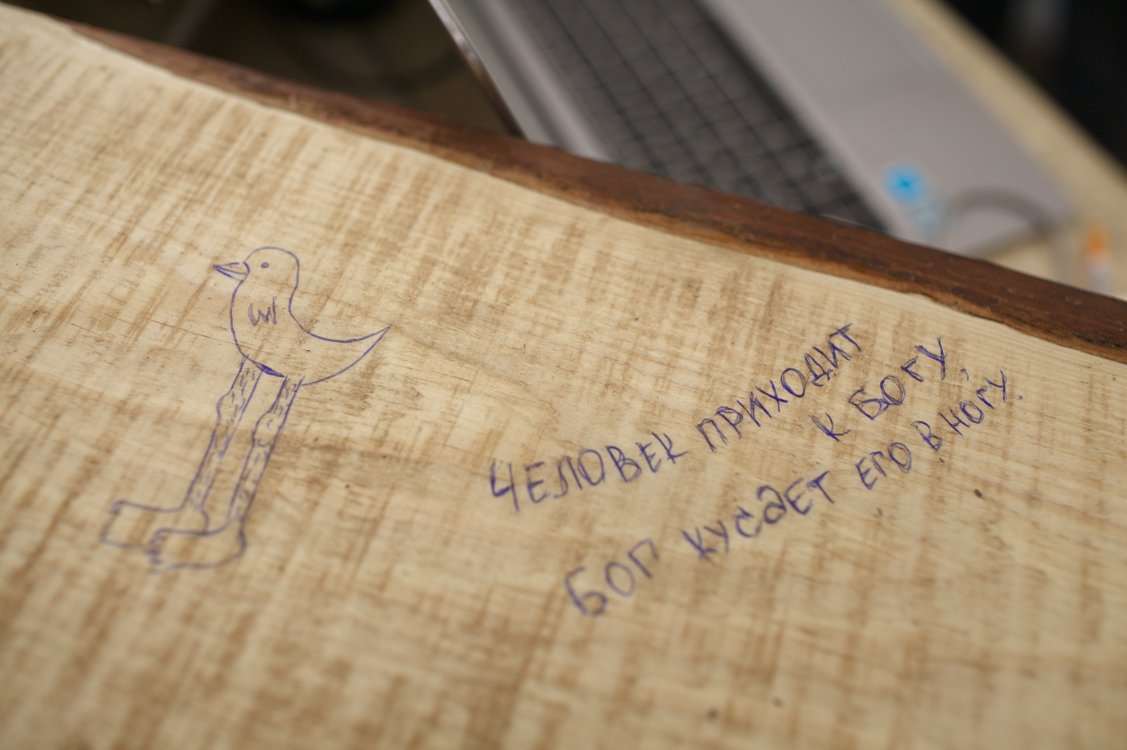 ЧЕЛОВЕК ПРИХОДИТ
К БОГУ,
БОГ КУСАЕТ ЕГО В НОГУ.